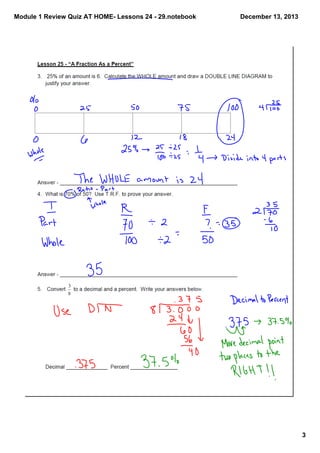 Module 1 Review Quiz AT HOME- Lessons 24 - 29.notebook
December 13, 2013
Lesson 25 - "A Fraction As a Percent"
3. 25% of an amount is 6. Calculate the WHOLE amount and draw a DOUBLE LINE DIAGRAM to
justify your answer.
%
0 25 50 75 100
4⟌100 25
0 6 12 18 24
Whole
25% → 25 ÷25 / 100 ÷25 = 1/4 → Divide into 4 parts
Answer - The WHOLE amount is 24
Ratio - Part
Whole
4. What is 70% of 50? Use T.R.F. to prove your answer.
T R F
Part 70 ÷ 2 = ? = 35
Whole 100 ÷2 50
35
2⟌70
-6
10
Answer - 35
5. Convert 3/8 to a decimal and a percent. Write your answers below.
Use D I N
.375
8⟌3.000
24
60
56
40
Decimal to Percent
.375 → 37.5%
Move decimal point
two places to the
RIGHT!!
Decimal .375 Percent 37.5%
3